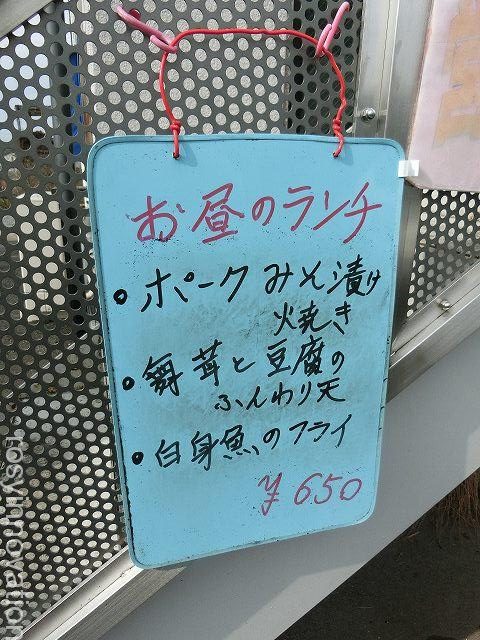 お昼のランチ
・ポークみそ漬け
火焼き
・舞茸と豆腐の
ふんわり天
・白身魚のフライ
¥650
rosyinnovation